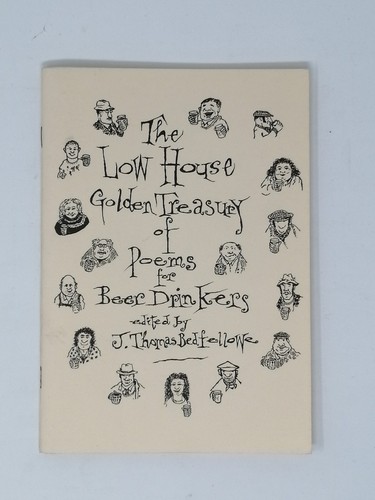 The
Low House
Golden Treasury
of
Poems
for
Beer Drinkers
edited by
J. Thomas Bedfellowe